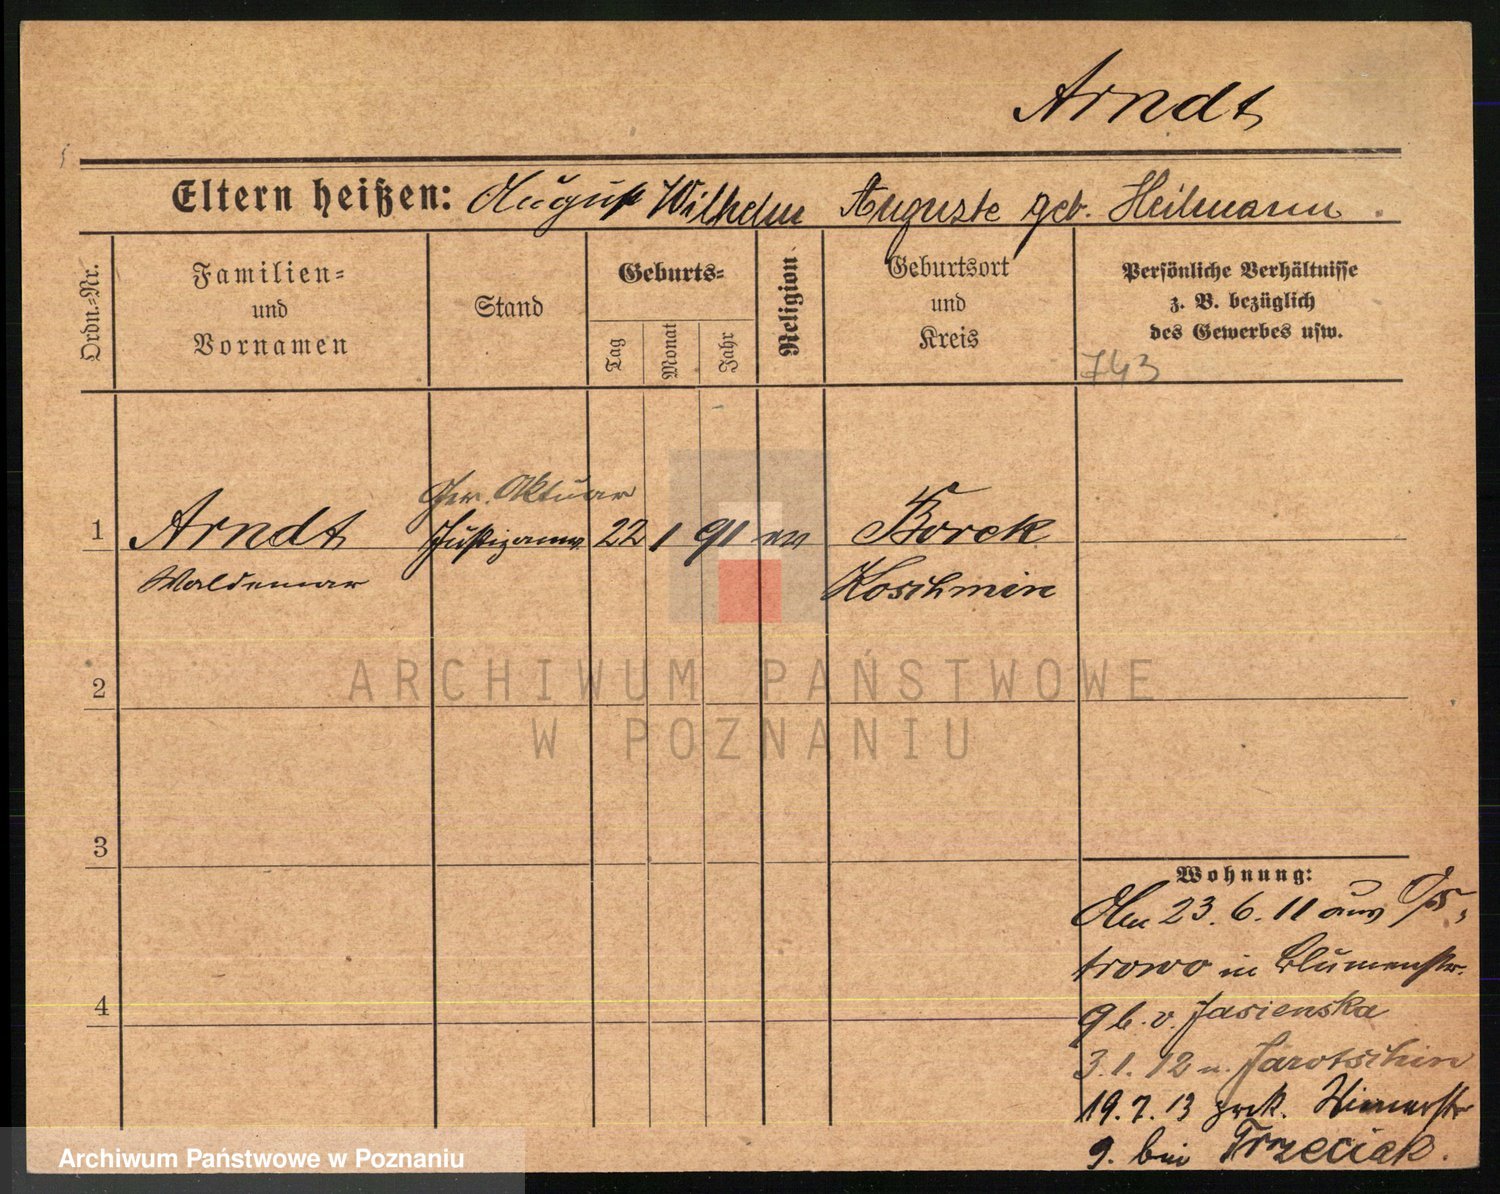 Arndt
Eltern heißen: August Wilhelm Auguste geb. Heilmann.
Ordn.-Nr.
Familien-
und
Vornamen
Stand
Geburts-
Tag
Monat
Jahr
Religion
Geburtsort
und
Kreis
Persönliche Verhältnisse
z. B. bezüglich
des Gewerbes usw.
743
Ger. Aktuar
1 Arndt Justizanw 22 1 91 ev Borek
Waldemar Koschmin
2
3
4
Wohnung:
Am 23.6.11 aus Os-
trowo in Blumenstr.
9 b. v. Jasienska
3.1.12 n. Jarotschin
19.7.13 zrck. Wienerstr
9. bei Trzeciak.
ARCHIWUM PAŃSTWOWE
W POZNANIU
Archiwum Państwowe w Poznaniu